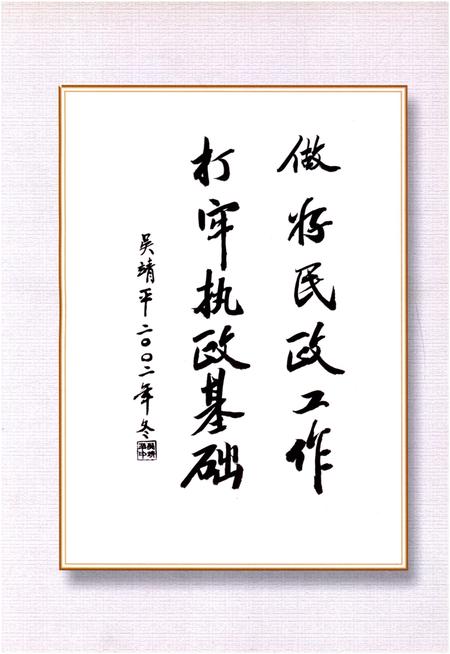 做好民政工作
打牢执政基础
吴靖平二〇〇二年冬